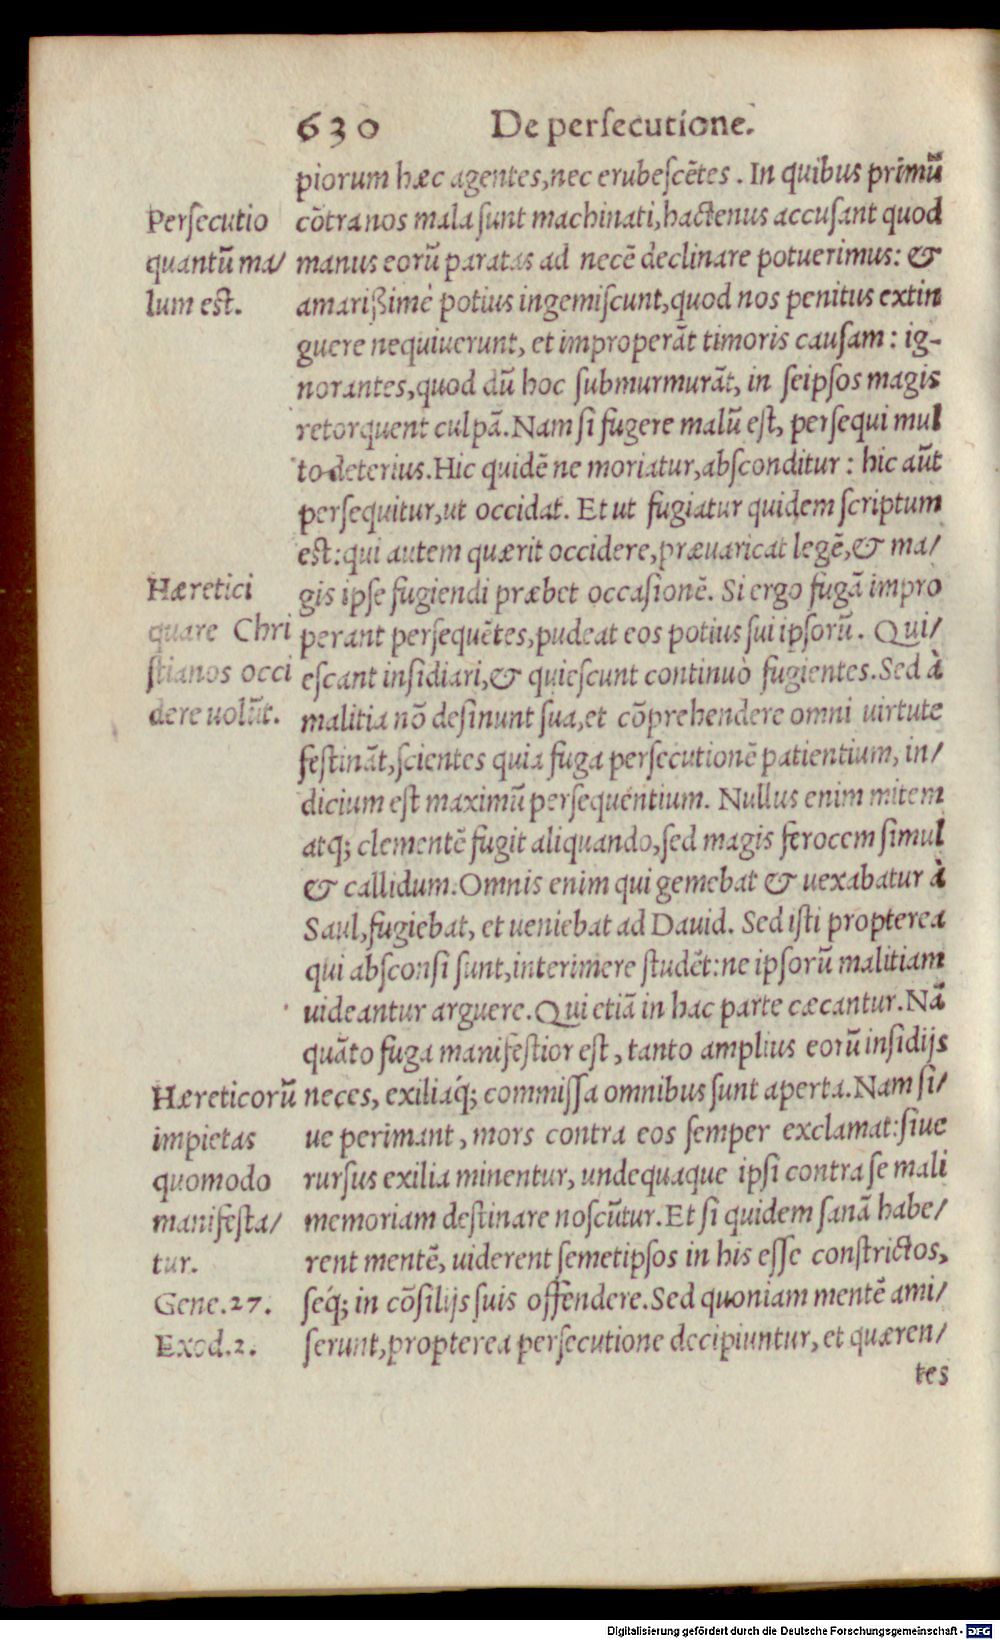 630 De persecutione.
piorum hæc agentes, nec erubescẽtes. In quibus primũ
cõtra nos mala sunt machinati, hactenus accusant quod
manus eorũ paratas ad necẽ declinare potuerimus: &
amarißimè potius ingemiscunt, quod nos penitus extin
guere nequiuerunt, et improperãt timoris causam: ig-
norantes, quod dũ hoc submurmurãt, in seipsos magis
retorquent culpã. Nam si fugere malũ est, persequi mul
to deterius. Hic quidẽ ne moriatur, absconditur: hic aũt
persequitur, ut occidat. Et ut fugiatur quidem scriptum
est: qui autem quærit occidere, præuaricat legẽ, & ma/
gis ipse fugiendi præbet occasionẽ. Si ergo fugã impro
perant persequẽtes, pudeat eos potius sui ipsorũ. Qui/
escant insidiari, & quiescunt continuò fugientes. Sed à
malitia nõ desinunt sua, et cõprehendere omni uirtute
festinãt, scientes quia fuga persecutionẽ patientium, in/
dicium est maximũ persequentium. Nullus enim mitem
atq́; clementẽ fugit aliquando, sed magis ferocem simul
& callidum. Omnis enim qui gemebat & uexabatur à
Saul, fugiebat, et ueniebat ad Dauid. Sed isti propterea
qui absconsi sunt, interimere studẽt: ne ipsorũ malitiam
uideantur arguere. Qui etiã in hac parte cæcantur. Nã
quãto fuga manifestior est, tanto amplius eorũ insidijs
neces, exiliaq́; commissa omnibus sunt aperta. Nam si/
ue perimant, mors contra eos semper exclamat: siue
rursus exilia minentur, undequaque ipsi contra se mali
memoriam destinare noscũtur. Et si quidem sanã habe/
rent mentẽ, uiderent semetipsos in his esse constrictos,
seq́; in cõsilijs suis offendere. Sed quoniam mentẽ ami/
serunt, propterea persecutione decipiuntur, et quæren/
tes
Persecutio
quantũ ma/
lum est.
Hæretici
quare Chri
stianos occi
dere uolũt.
Hæreticorũ
impietas
quomodo
manifesta/
tur.
Gene. 27.
Exod. 2.
Digitalisierung gefördert durch die Deutsche Forschungsgemeinschaft - DFG